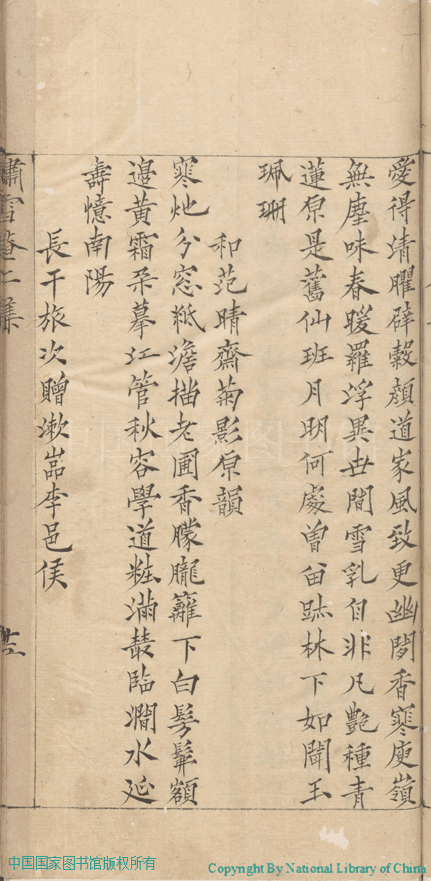 愛得清臞辟穀顏道家風致更幽閒香寒庾嶺
無塵味春暖羅浮異世間雪乳自非凡艷種青
蓮原是舊仙班月明何處曾留跡林下如聞玉
珮珊
和范晴齋菊影原韻
寒灺分窓紙澹描老圃香朦朧籬下白髣髴額
邊黃霜朶摹江管秋容學道粧滿䕺臨澗水延
壽憶南陽
長干旅次贈漱嵓李邑侯
嘯雪菴二集
中国国家图书馆版权所有
Copyright By National Library of China